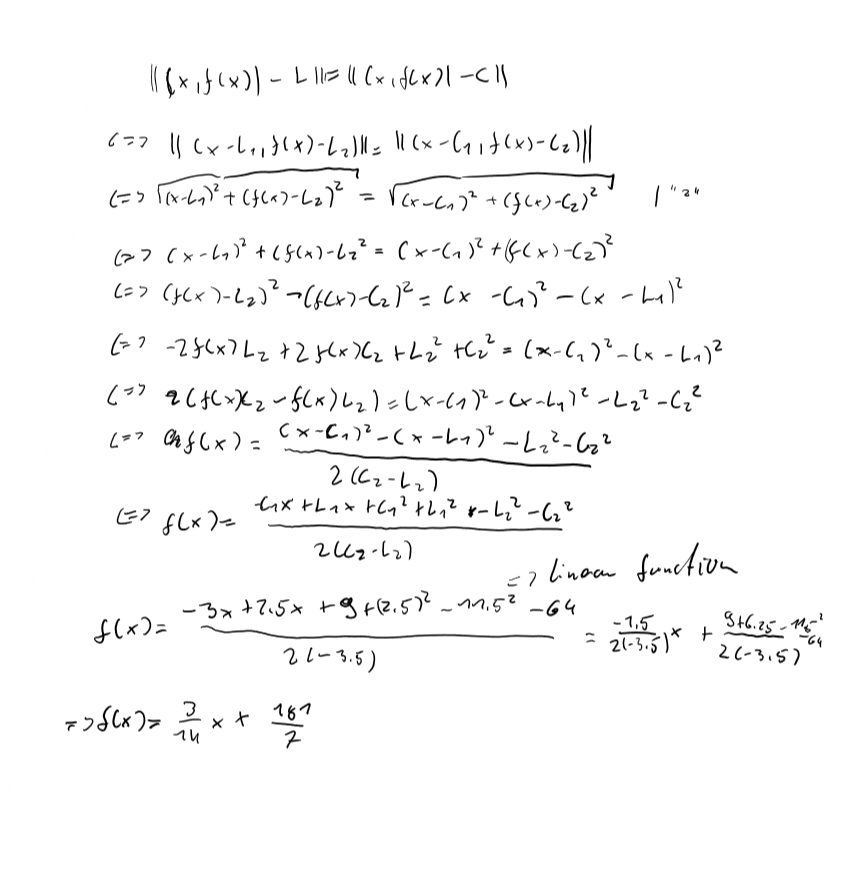 ||(x,f(x)) - L|| = ||(x,f(x)) - C||
<=> ||(x-L₁,f(x)-L₂)|| = ||(x-C₁,f(x)-C₂)||
<=> √((x-L₁)²+(f(x)-L₂)²) = √((x-C₁)²+(f(x)-C₂)²) | "2"
<=> (x-L₁)²+(f(x)-L₂² = (x-C₁)²+(f(x)-C₂)²
<=> (f(x)-L₂)²-(f(x)-C₂)² = (x-C₁)²-(x-L₁)²
<=> -2f(x)L₂+2f(x)C₂+L₂²+C₂² = (x-C₁)²-(x-L₁)²
<=> 2(f(x)C₂-f(x)L₂) = (x-C₁)²-(x-L₁)²-L₂²-C₂²
<=> f(x) = ((x-C₁)²-(x-L₁)²-L₂²-C₂²)/(2(C₂-L₂))
<=> f(x) = (-C₁x+L₁x+C₁²+L₁²-L₂²-C₂²)/(2(C₂-L₂))
=> linear function
f(x) = (-3x+7.5x+9+(2.5)²-11.5²-64)/(2(-3.5)) = (-1,5)/(2(-3.5))x + (9+6.25-11.5²-64)/(2(-3.5))
=> f(x) = 3/14 x + 181/7